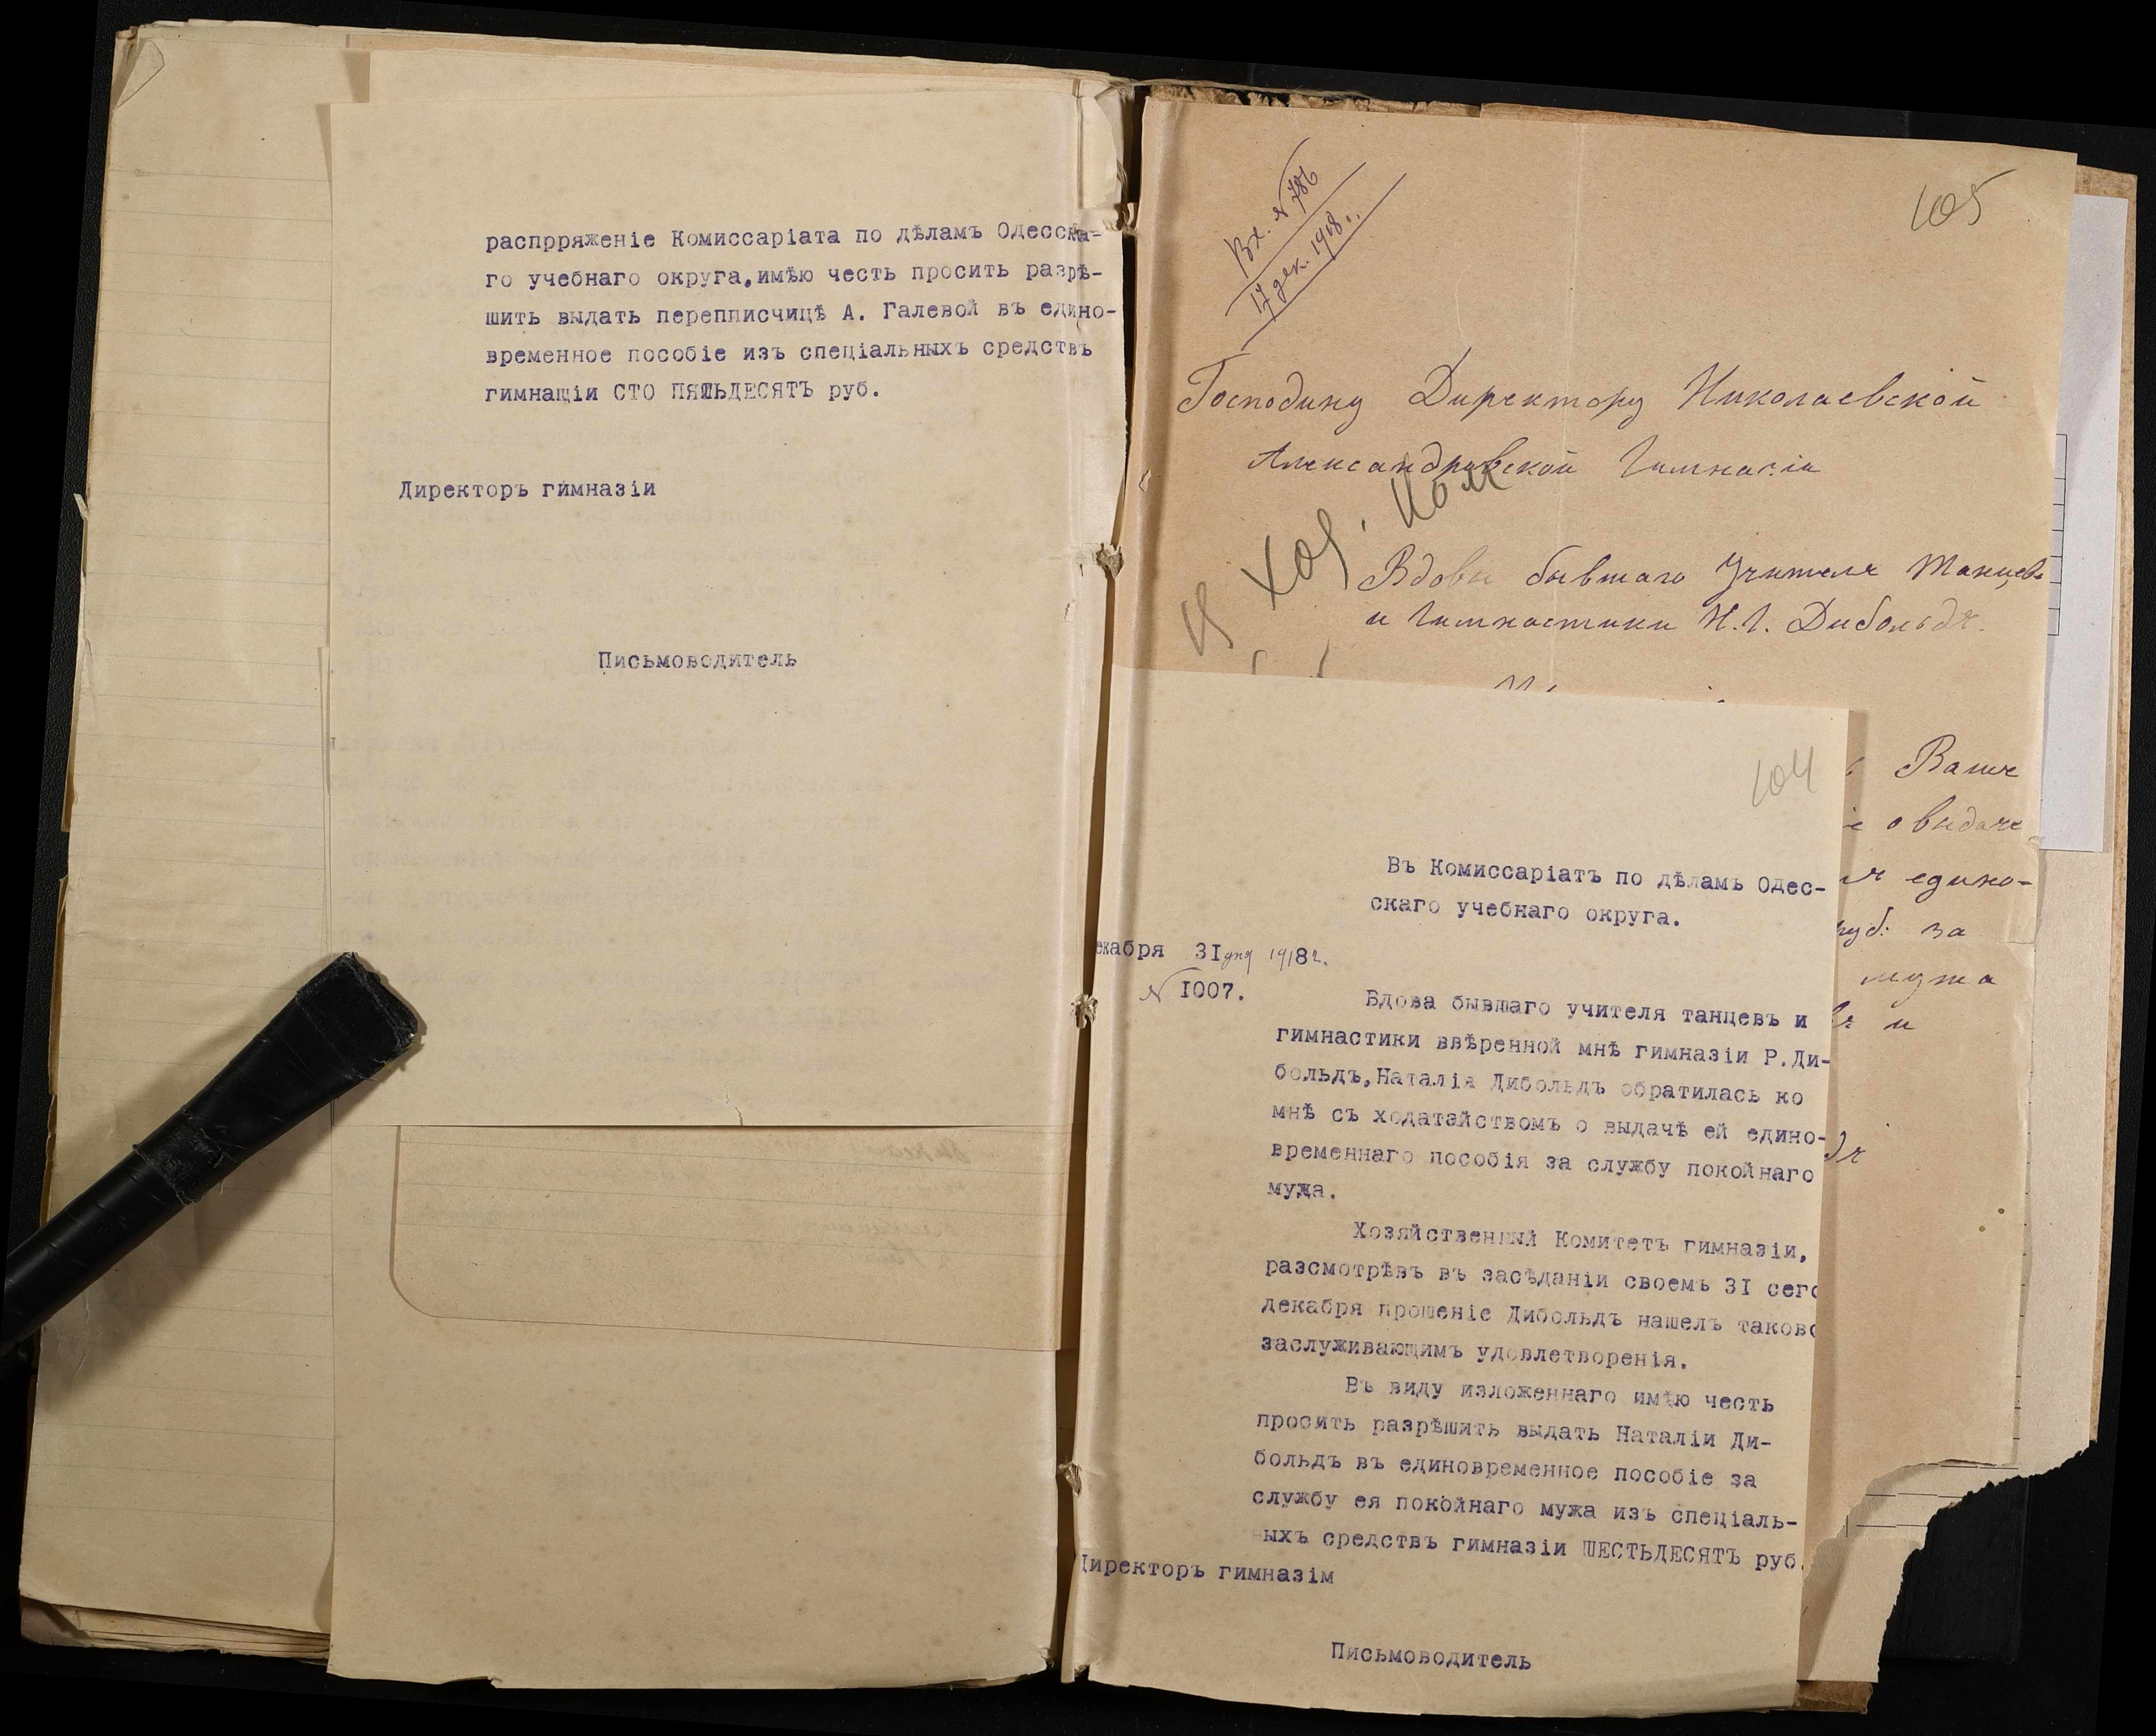 распрряженіе Комиссаріата по дѣламъ Одесска-
го учебнаго округа,имѣю честь просить разрѣ-
шить выдать перепписчицѣ А. Галевой въ едино-
временное пособіе изъ спеціальныхъ средствъ
гимнащіи СТО ПЯТЬДЕСЯТЪ руб.
Директоръ гимназіи
Письмоводитель
Вх. № 786
17 дек. 1918 г.
105
Господину Директору Николаевской
Александровской Гимназіи
Хоз. Ком
Вдовы бывшаго Учителя Танцевъ
и Гимнастики Н.І. Дибольдъ.
Ваше
о выдаче
едино-
руб: за
мужа
и
104
Въ Комиссаріатъ по дѣламъ Одес-
скаго учебнаго округа.
екабря 31 дня 1918 г.
№ 1007.
Вдова бывшаго учителя танцевъ и
гимнастики ввѣренной мнѣ гимназіи Р.Ди-
больдъ,Наталія Дибольдъ обратилась ко
мнѣ съ ходатэйствомъ о выдачѣ ей едино-
временнаго пособія за службу покойнаго
мужа.
Хозяйственный Комитетъ гимназіи,
разсмотрѣвъ въ засѣданіи своемъ 31 сего
декабря прошеніе Дибольдъ нашелъ таково
заслуживающимъ удовлетворенія.
Въ виду изложеннаго имѣю честь
просить разрѣшить выдать Наталіи Ди-
больдъ въ единовременное пособіе за
службу ея покойнаго мужа изъ спеціаль-
ныхъ средствъ гимназіи ШЕСТЬДЕСЯТЪ руб.
Директоръ гимназім
Письмоводитель